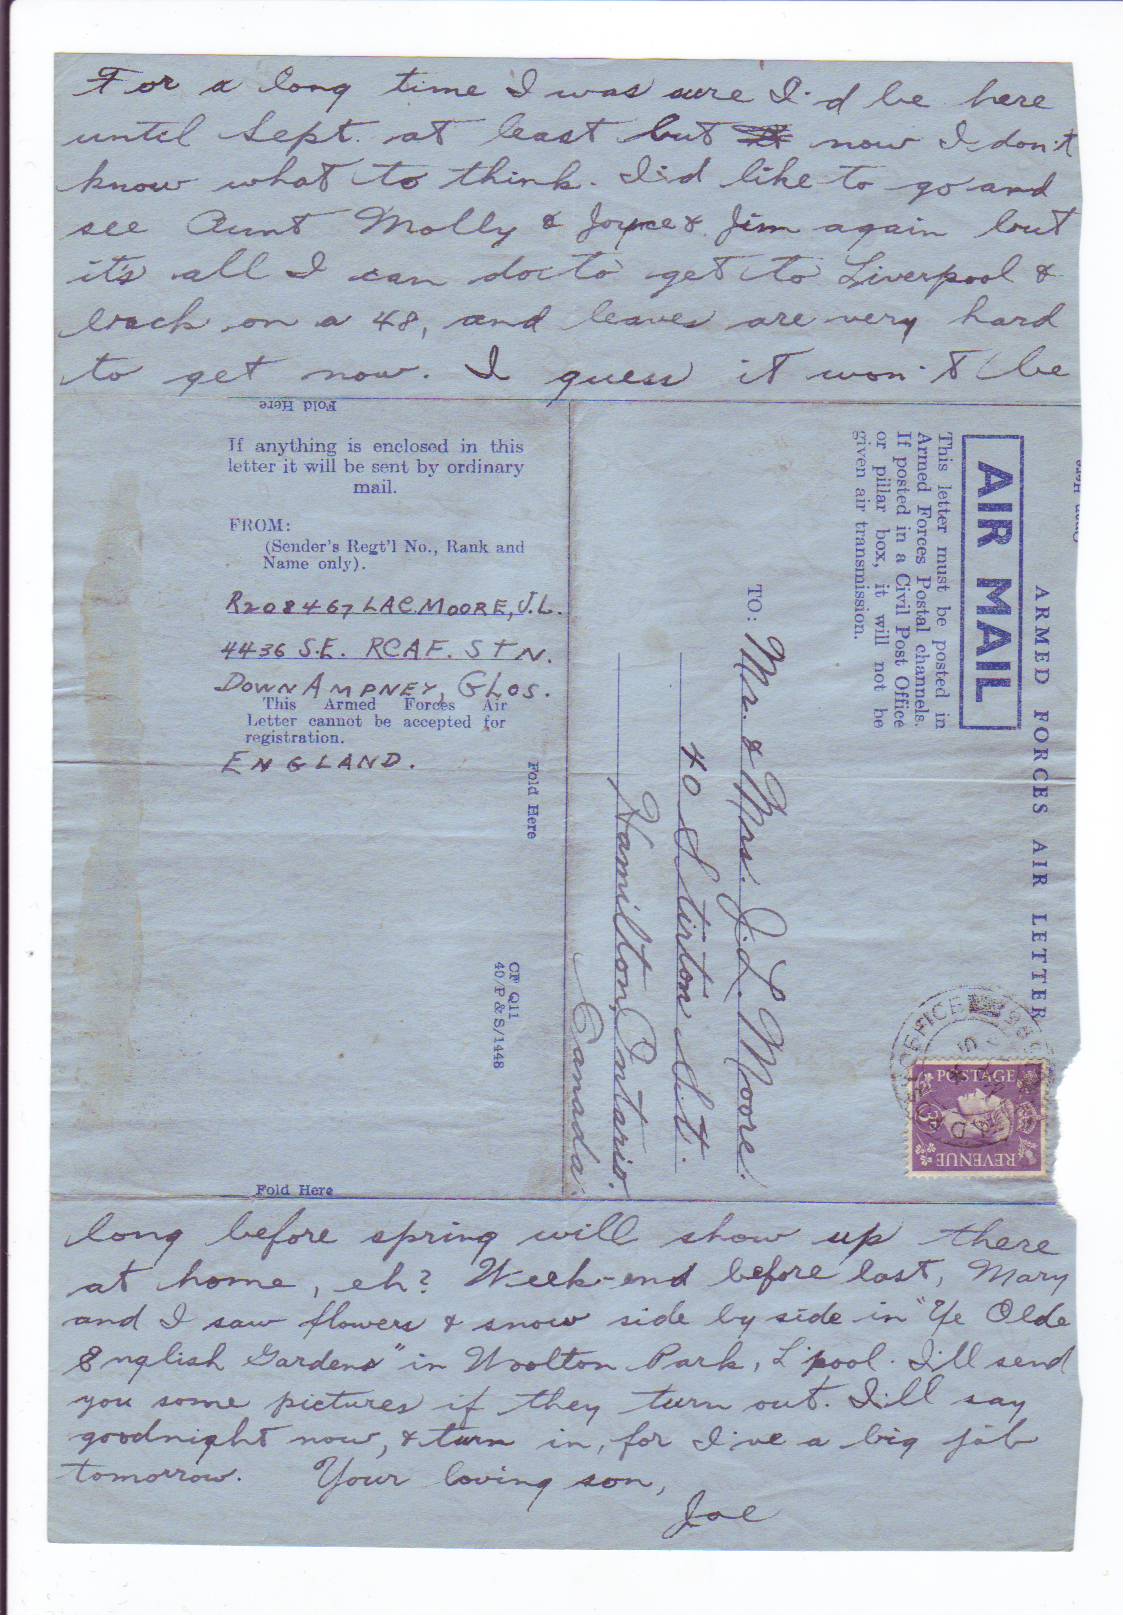 For a long time I was sure I'd be here
until Sept. at least but now I don't
know what to think. I'd like to go and
see Aunt Molly & Joyce & Jim again but
it's all I can do to get to Liverpool &
back on a 48, and leaves are very hard
to get now. I guess it won't be
Fold Here
If anything is enclosed in this
letter it will be sent by ordinary
mail.
FROM:
(Sender's Regt'l No., Rank and
Name only).
R208467 LAC. MOORE, J.L.
4436 S.E. RCAF. STN.
DOWN AMPNEY, GLOS.
This Armed Forces Air
Letter cannot be accepted for
registration.
ENGLAND.
Fold Here
CF Q11
40/P & S/1448
Fold Here
ARMED FORCES AIR LETTER
AIR MAIL
This letter must be posted in
Armed Forces Postal channels.
If posted in a Civil Post Office
or pillar box, it will not be
given air transmission.
TO: Mr. & Mrs. J. L. Moore.
40 Stirton St.
Hamilton, Ontario.
Canada.
POSTAGE
REVENUE
OFFICE
long before spring will show up there
at home, eh? Week-end before last, Mary
and I saw flowers & snow side by side in "Ye Olde
English Gardens" in Woolton Park, L'pool. I'll send
you some pictures if they turn out. I'll say
goodnight now, & turn in, for I've a big job
tomorrow. Your loving son,
Joe